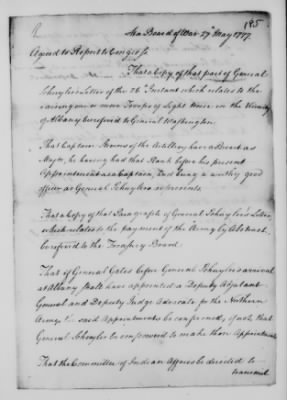 185
At a Board of War 27th May 1777.
Agreed to Report to Congress
That a Copy of that part of General
Schuyler's Letter of the 26 Instant which relates to the
raising one or more Troops of Light Horse in the Vicinity
of Albany be referred to General Washington.
That Captain Stevens of the Artillery have a Brevet as
Major, he having had that Rank before his present
Appointment as a Captain, and being a worthy good
officer as General Schuyler represents.
That a Copy of that Paragraph of General Schuyler's Letter,
which relates to the payment of the Army by Abstract
be referred to the Treasury Board.
That if General Gates before General Schuyler's arrival
at Albany shall have appointed a Deputy Adjutant
General and Deputy Judge Advocate for the Northern
Army said Appointments be confirmed, if not that
General Schuyler be empowered to make those Appointments
That the Committee of Indian Affairs be directed to
transmit